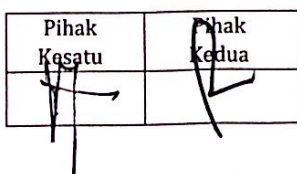 Pihak Kesatu
Pihak Kedua